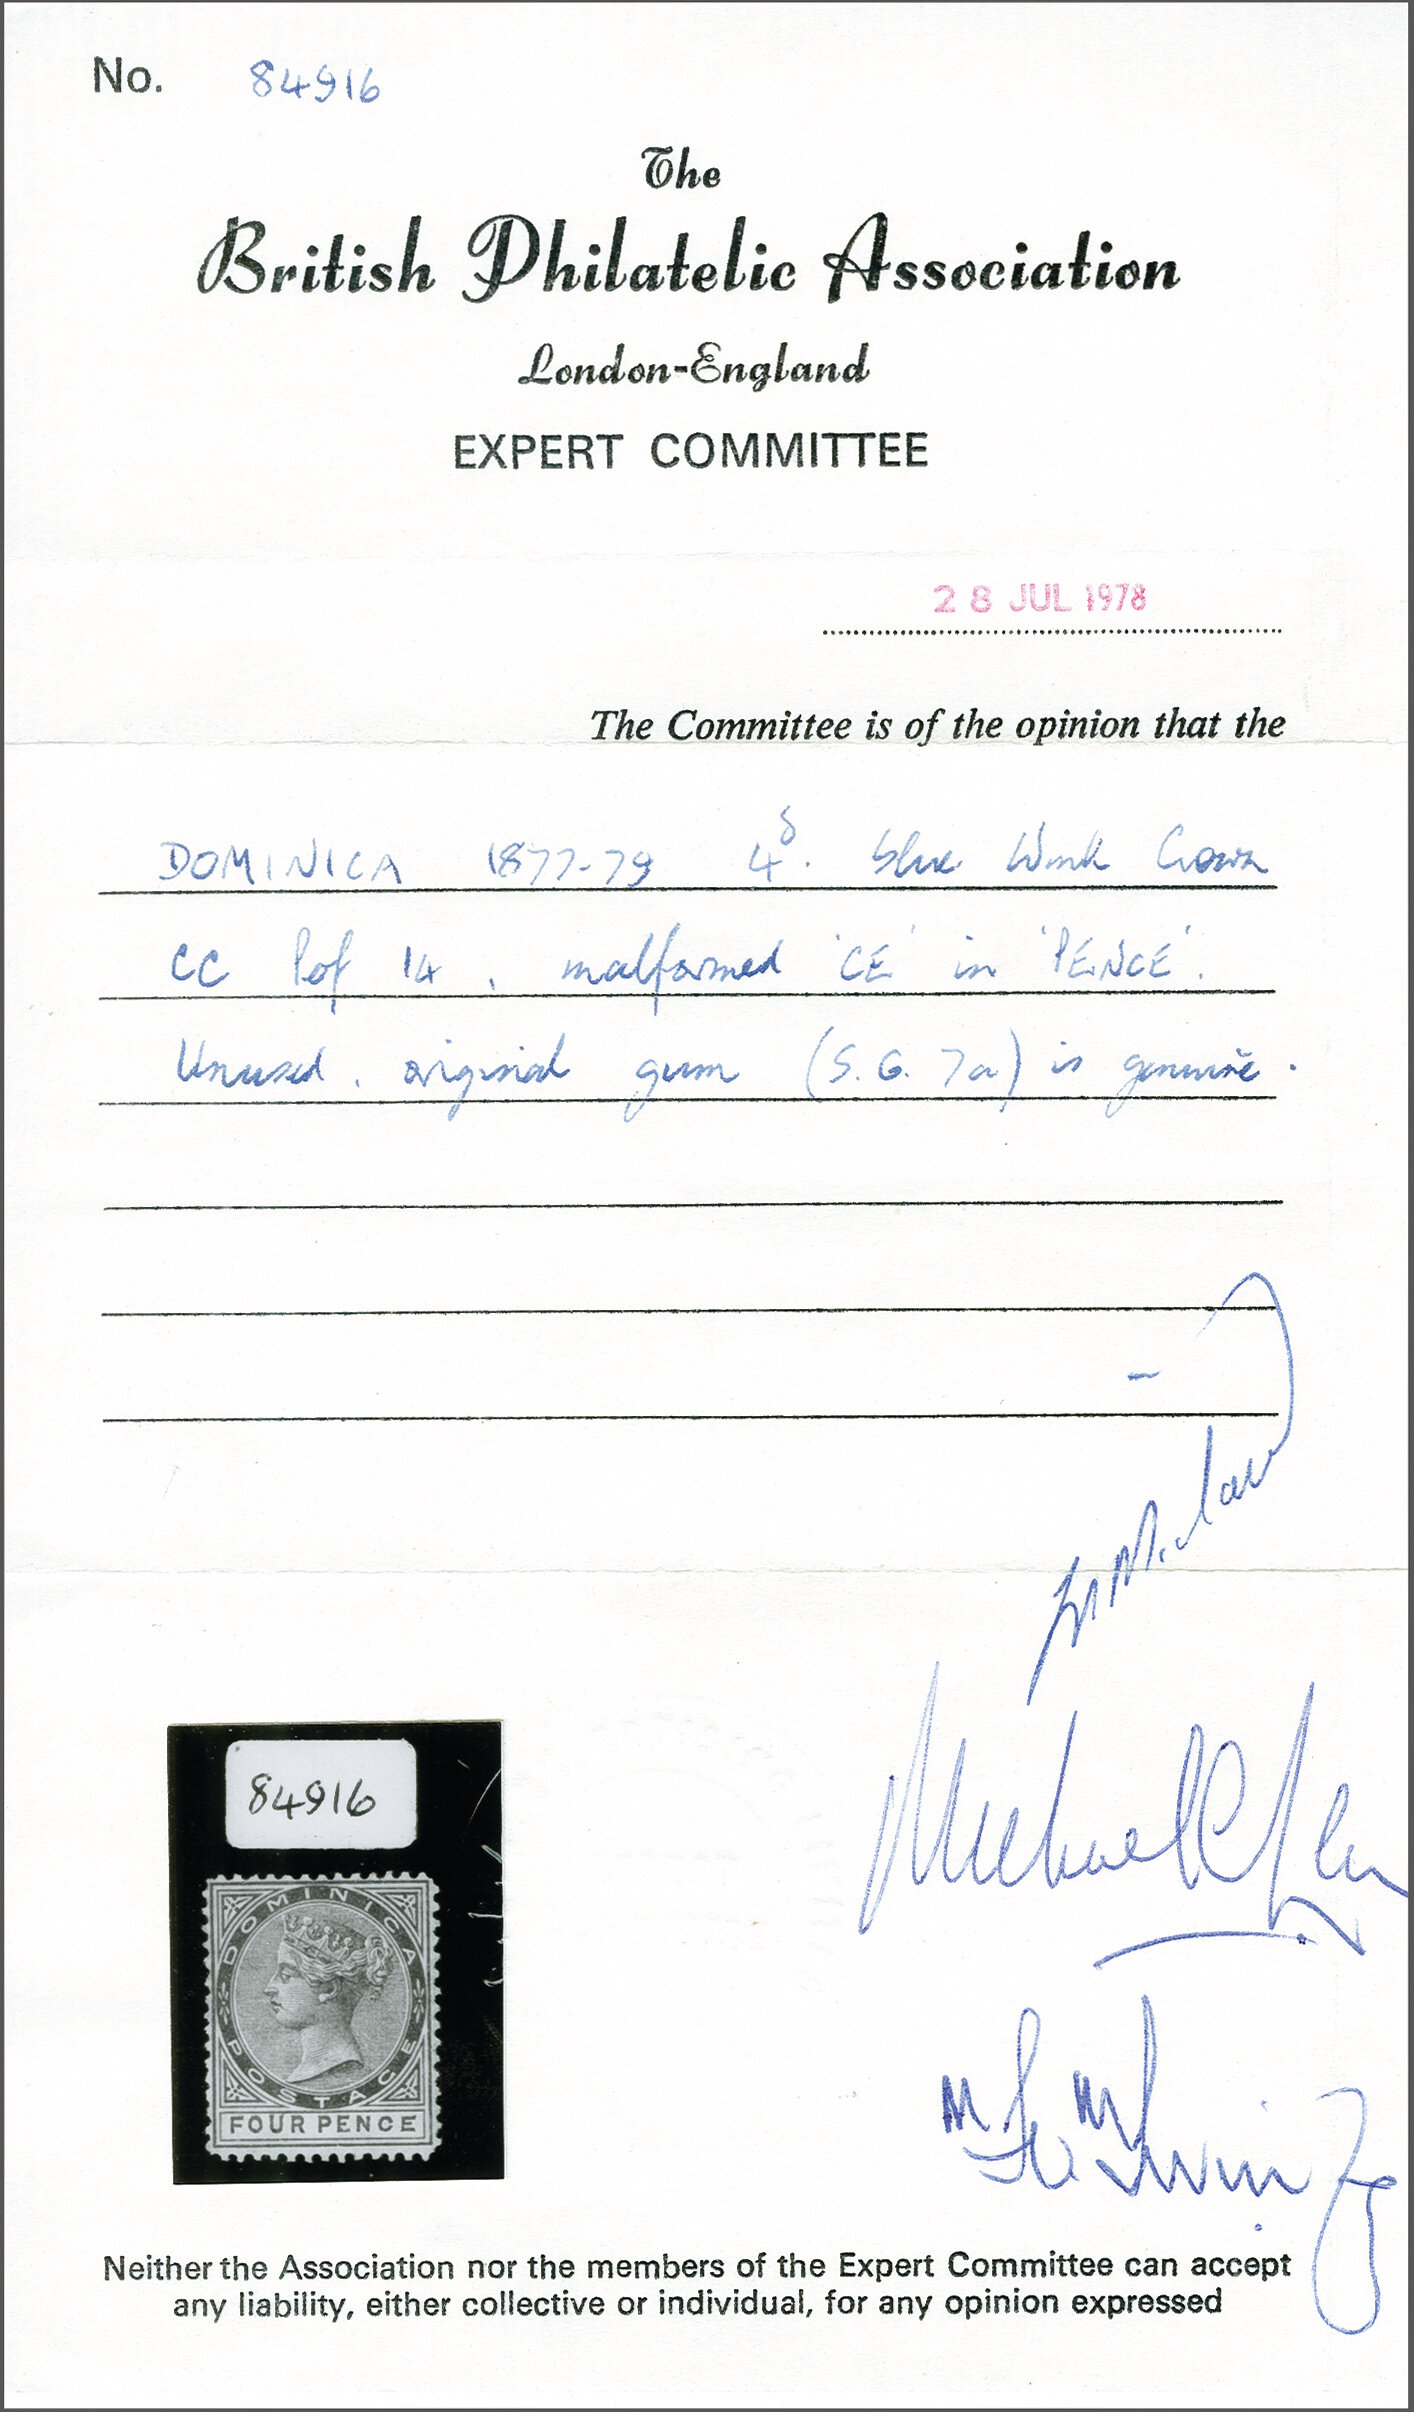 No. 84916
The
British Philatelic Association
London-England
EXPERT COMMITTEE
28 JUL 1978
The Committee is of the opinion that the
DOMINICA 1877-79 4d. blue Wmk Crown
CC Perf 14, malformed 'CE' in 'PENCE'.
Unused, original gum (S.G. 7a) is genuine.
Michael
84916
DOMINICA
POSTAGE
FOUR PENCE
Neither the Association nor the members of the Expert Committee can accept
any liability, either collective or individual, for any opinion expressed